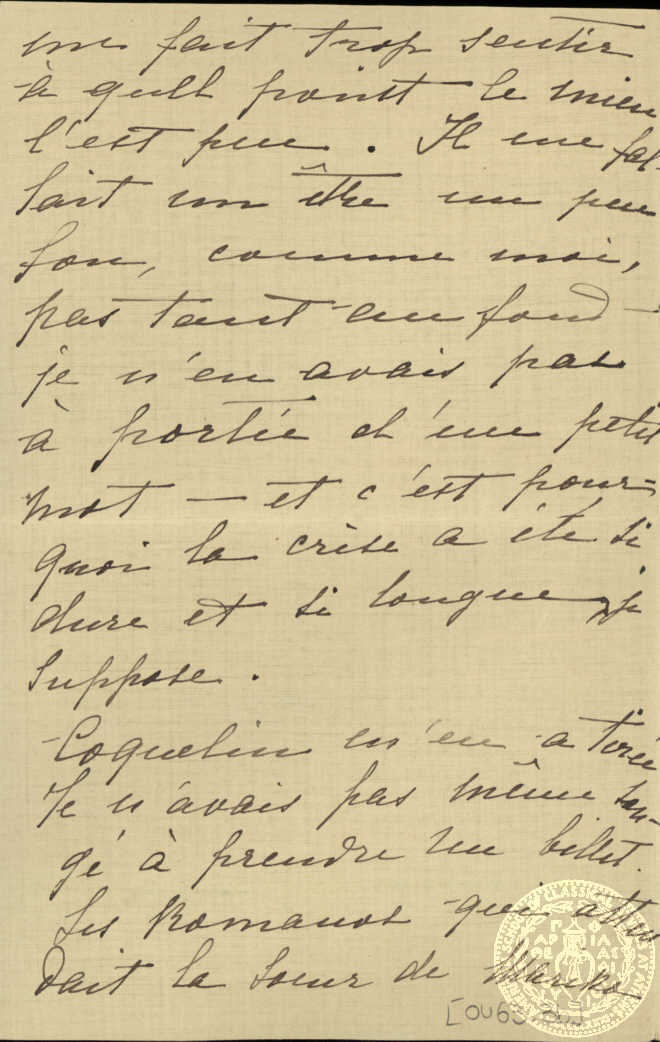 me fait trop sentir
à quel point le mien
l'est peu. Il me fal-
lait un être un peu
fou, comme moi,
pas tant au fond —
je n'en avais pas
à portée d'un petit
mot — et c'est pour-
quoi la crise a été si
dure et si longue, je
suppose.
Coquelin m'en a tirée
Je n'avais pas même son-
gé à prendre un billet.
Les Romanos qui atten
dait la soeur de Marika
[OU63